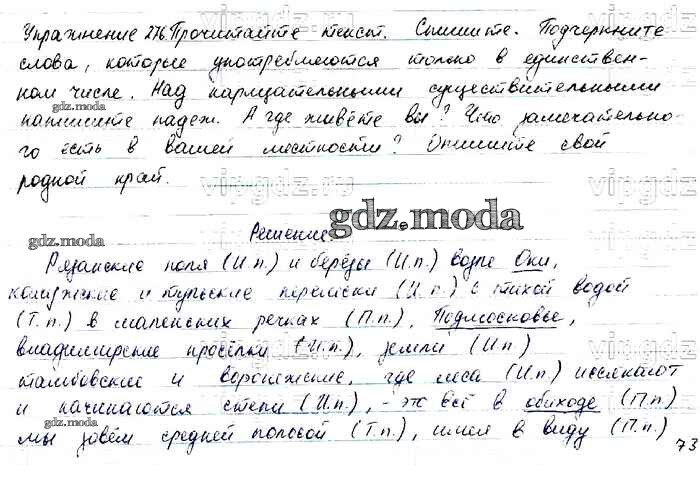 Упражнение 276. Прочитайте текст. Спишите. Подчеркните
слова, которые употребляются только в единствен-
ном числе. Над нарицательными существительными
напишите падеж. А где живёте вы? Что замечательно-
го есть в вашей местности? Опишите свой
родной край.
Решение.
Рязанские поля (И.п.) и берёзы (И.п.) возле Оки,
калужские и тульские перелески (И.п.) с тихой водой
(Т.п.) в маленьких речках (П.п.), Подмосковье,
владимирские просёлки (И.п.), земли (И.п)
тамбовские и воронежские, где леса (И.п) иссякают
и начинаются степи (И.п.), - это всё в обиходе (П.п)
мы зовём средней полосой (Т.п.), имея в виду (П.п)
73
gdz.moda
gdz.moda
gdz.moda
gdz.moda
gdz.moda
vipgdz.ru
vipgdz.ru
vipgdz.ru